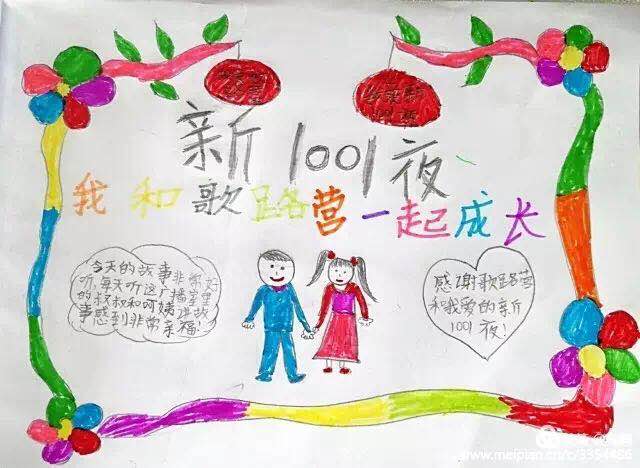 新1001夜
我和歌路营一起成长
今天的故事非常好
听,每天听这广播里
的叔叔和阿姨讲故
事感到非常幸福!
感谢歌路营
和我爱的新
1001夜!